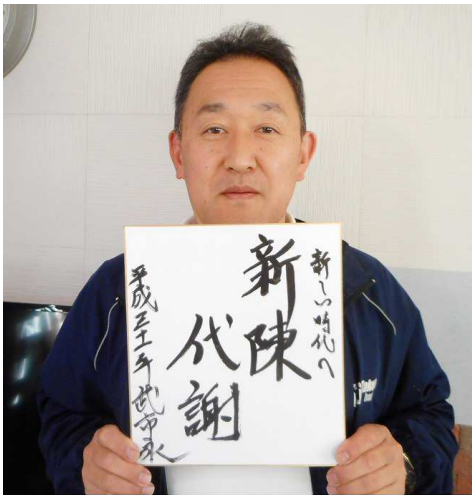 新しい時代へ
新陳
代謝
平成三十一年 武市永